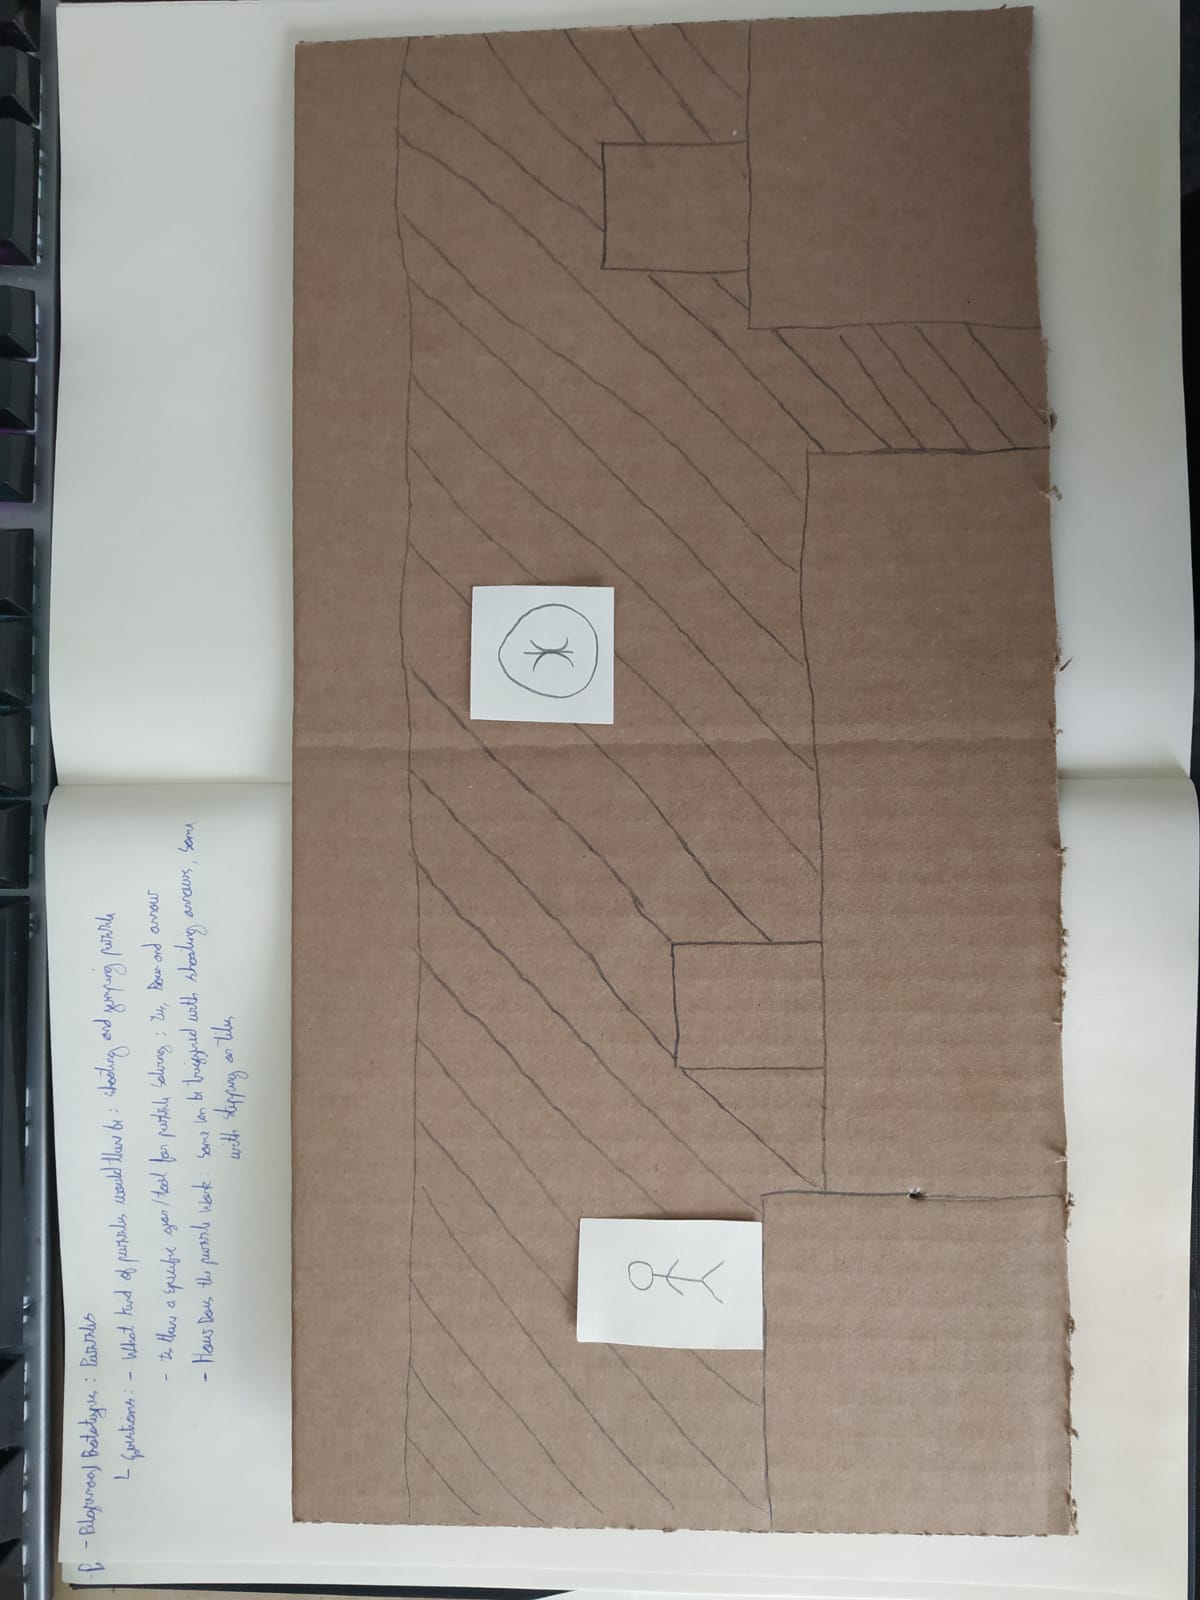 - P(ilgrimage) Prototypes : Puzzles
Questions : - What kind of puzzles would there be : shooting and jumping puzzle
- Is there a specific gear/tool for puzzle solving : Yes, Bow and arrow
- How Does the puzzle work : Some can be triggered with shooting arrows, some
with stepping on tiles